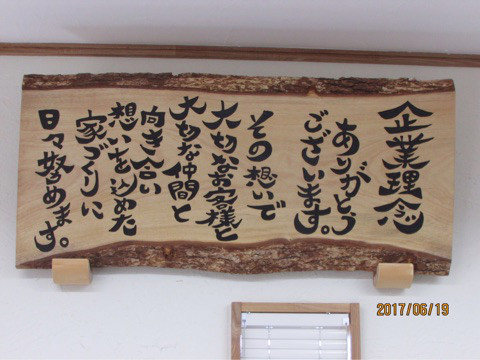 企業理念
ありがとう
ございます。
その想いで
大切なお客様と
大切な仲間と
向き合い
想いを込めた
家づくりに
日々努めます。
2017/06/19